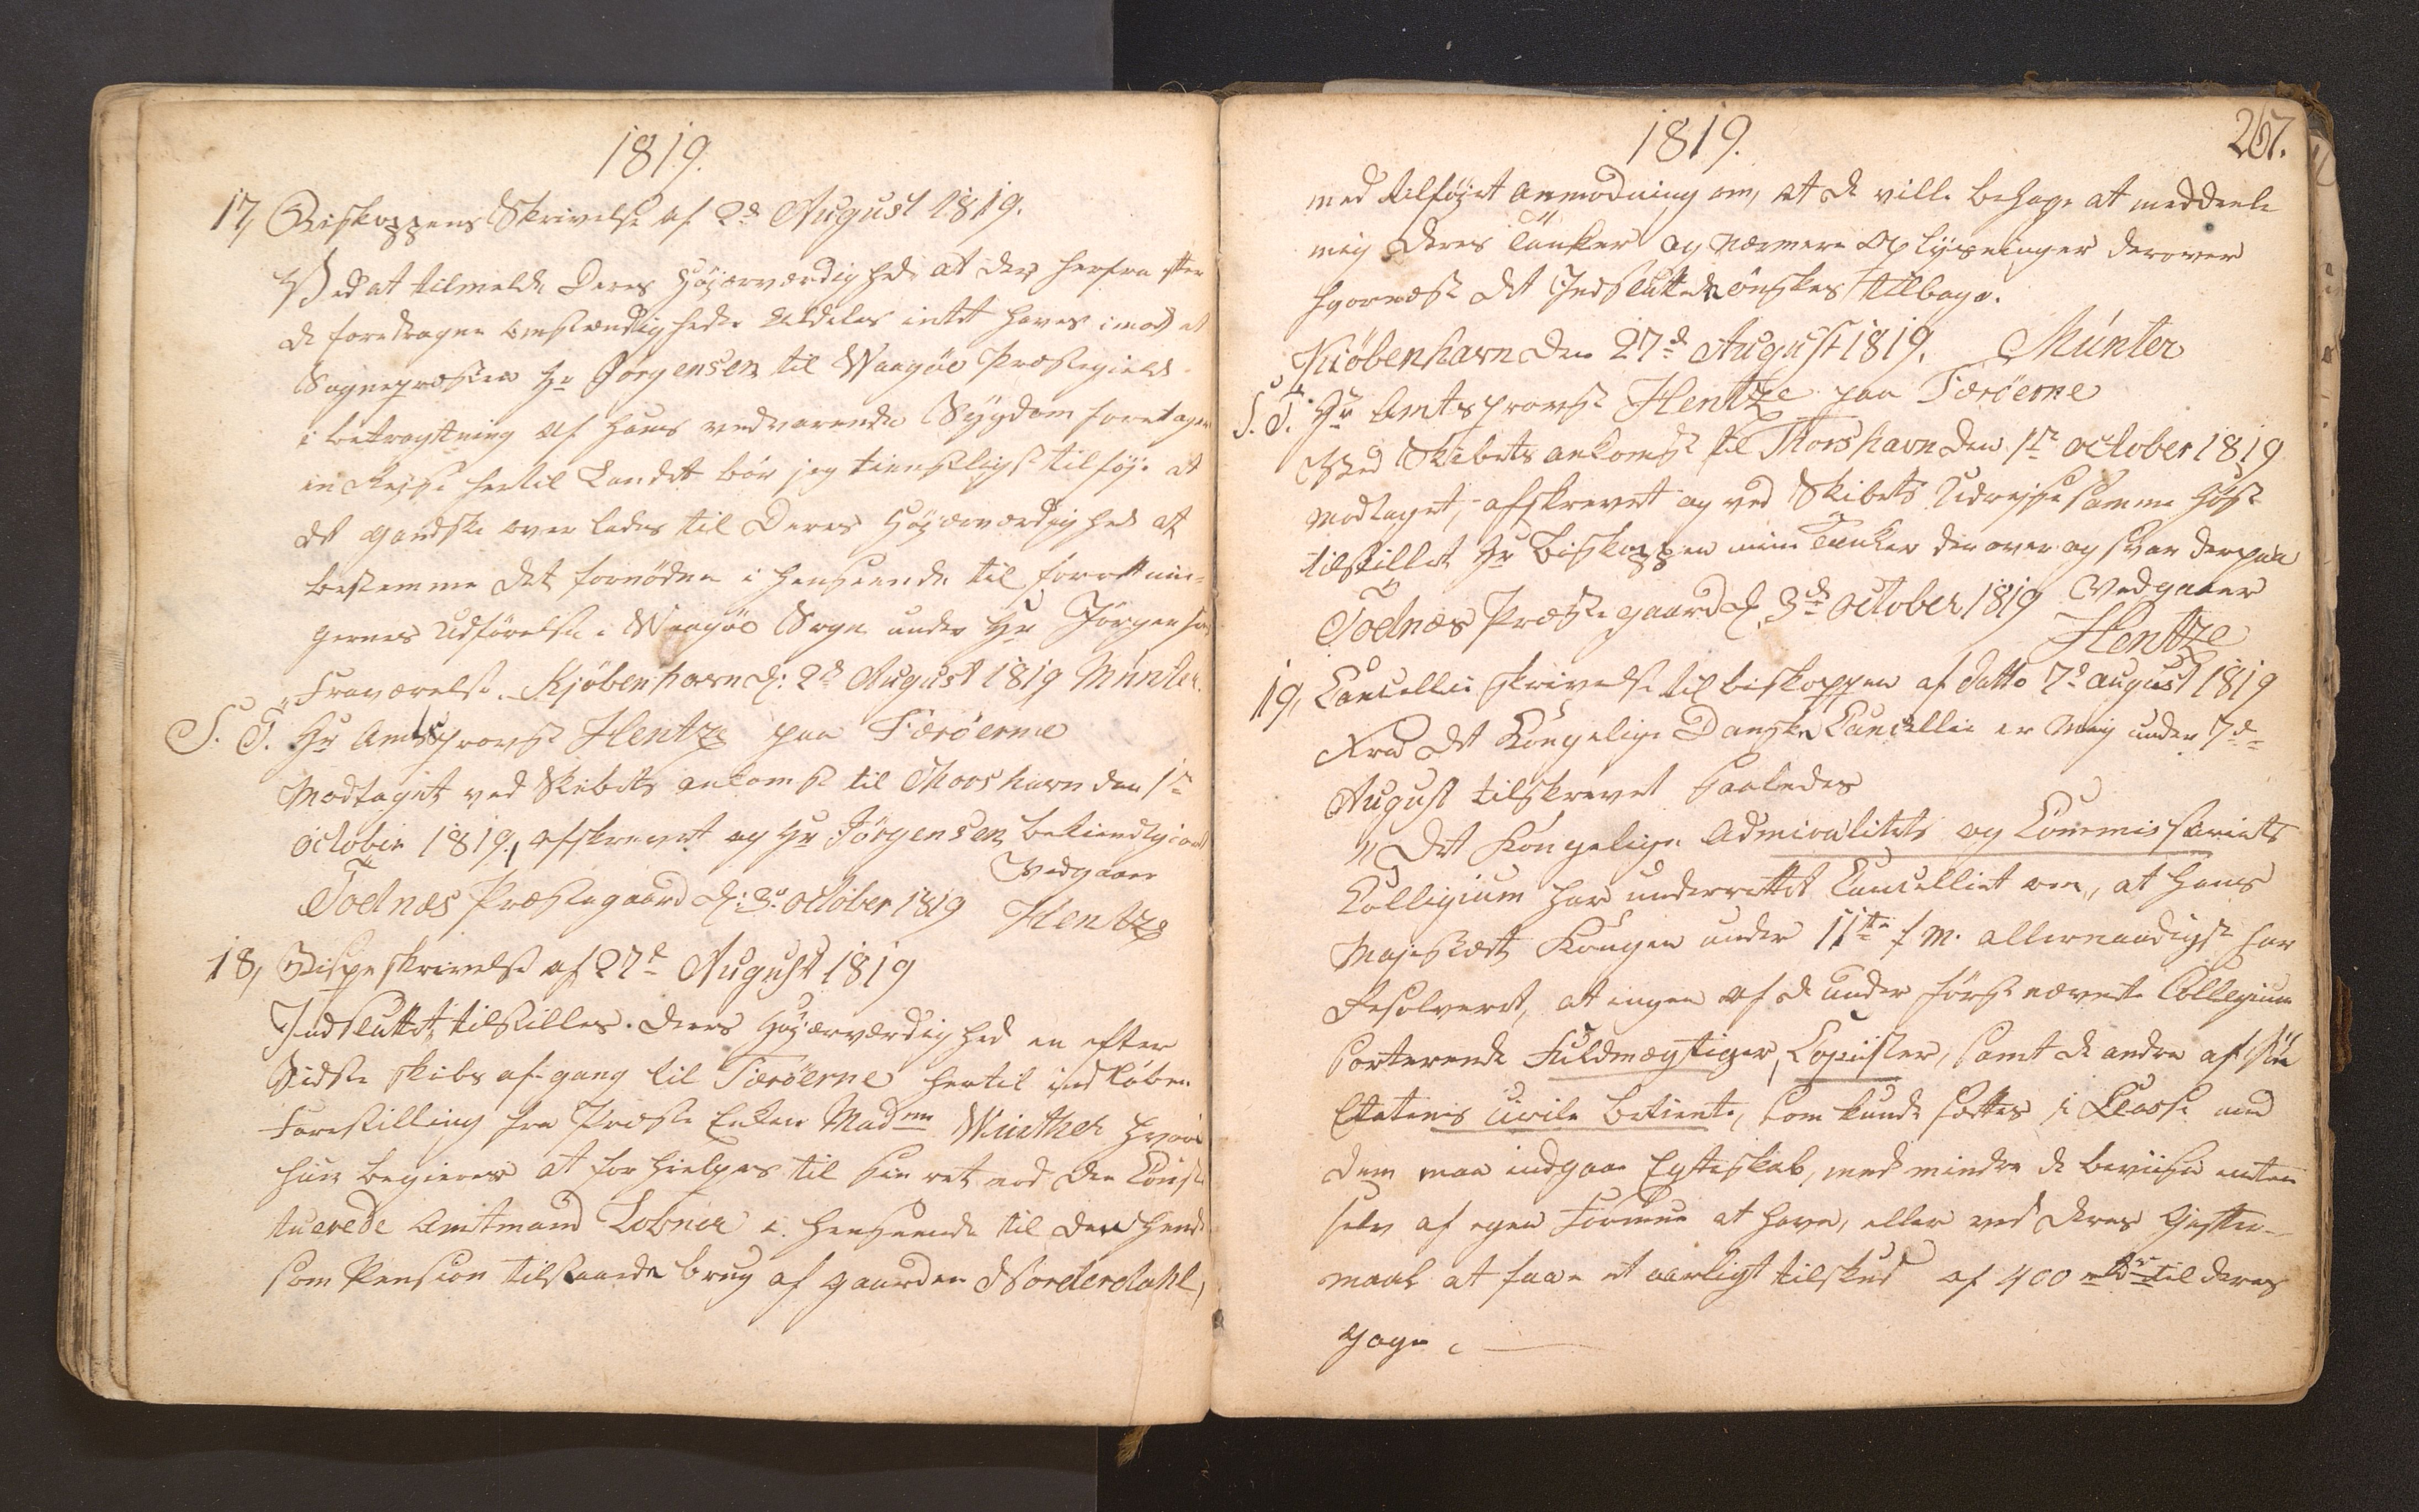 1819.
17, Biskoppens Skrivelse af 2d August 1819.
Ved at tilmelde Deres Højærværdighed at der herfra efter
de foredragne omstændigheder aldeles intet haves imod at
Sognepræsten Hr Jörgensen til Waagöe Præstegield
i betragtning af hans vedvarende Sygdom foretager
en Rejse hertil Landet bör jeg tienstligst tilföje at
det gandske overlades til Deres Højærværdighed at
bestemme det fornödne i henseende til forretnin-
gernes Udförelse i Waagöe Sogn under Hr Jörgensens
Fraværelse. Kjöbenhavn d: 2d August 1819 Münter.
S. T. Hr Amtsprovst Hentze paa Færöerne
Modtaget ved Skibets ankomst til Thorshavn den 1te
october 1819, afskrevet og Hr Jörgensen bekiendtgiort
Vedgaaer
Todnæs Præstegaard d: 3d october 1819 Hentze
18, Bispeskrivelse af 27d August 1819
Indsluttet tilstilles Deres Højærværdighed en efter
Sidste skibs afgang til Færöerne hertil indlöben
Forestilling fra Præste Enken Madme Winther hvori
hun begierer at forhielpes til sin ret mod den Consti
tuerede Amtmand Löbner i henseende til den hende
som Pension tilstaaede brug af gaarden Norderdahl,
1819.
267.
med tilföjet anmodning om, at De ville behage at meddeele
mig Deres Tanker og nærmere Oplysninger derover
hvornæst det Indsluttede önskes tilbage.
Kiöbenhavn den 27d August 1819. Münter
S. T. Hr Amtsprovst Hentze paa Færöerne
Med Skibets ankomst til Thorshavn den 1te october 1819
modtaget, afskrevet og ved Skibets Udrejse samme Höst
tilstillet Hr Biskoppen mine Tanker derover og svar derpaa
Vedgaaer
Todnæs Præstegaard d. 3d october 1819
Hentze
19, Cancellie skrivelse til biskoppen af datto 7d august 1819
Fra det Kongelige Danske Cancellie er mig under 7d
August tilskrevet saaledes
"Det Kongelige Admiralitets og Commissariats
Collegium har underrettet Cancelliet om, at Hans
Majestæt Kongen under 11te f. M. allernaadigst har
Resolveret, at ingen af de under förstnævnte Collegium
Sorterende Fuldmægtiger, Copiister, samt de andre af Söe
Etatens civile betiente, som kunde sættes i Classe med
dem maa indgaae Egteskab, med mindre de beviise enten
selv af egen Formue at have, eller ved deres Gifter-
maal at faae et aarligt tilskud af 400 rdr til deres
gage.